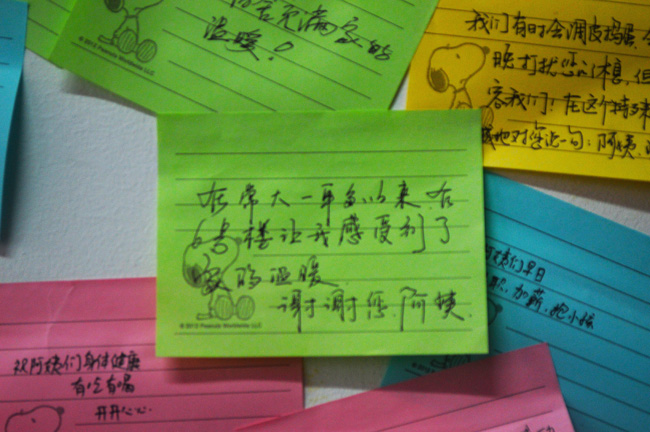 宿舍充满家的
温暖!
© 2012 Peanuts Worldwide LLC
我们有时会调皮捣蛋,
晚打扰您的休息,但
容我们!在这个特殊
地对您说一句:阿姨,
在常大一年多以来,在
6号楼让我感受到了
家的温暖
谢谢您,阿姨.
© 2012 Peanuts Worldwide LLC
阿姨们早日
加薪,抱小孩
祝阿姨们身体健康
有吃有喝
开开心心.